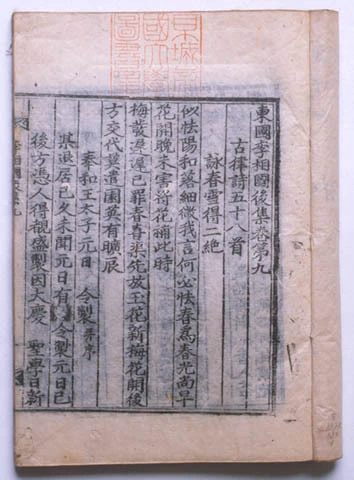 京城帝
國大學
圖書章
東國李相國後集卷第九
古律詩五十八首
詠春雪得二絶
似怯陽和落細微我言何必怯春爲春光尚早
花開晚未害將花補此時
梅發遲遲已罪春喜渠先放玉花新梅花開後
方交代莫遣園英有曠辰
奉和王太子元日 令製 并序
某退居已久未聞元日有 令製元日已
後方憑人得覩盛製因大慶 聖學日新